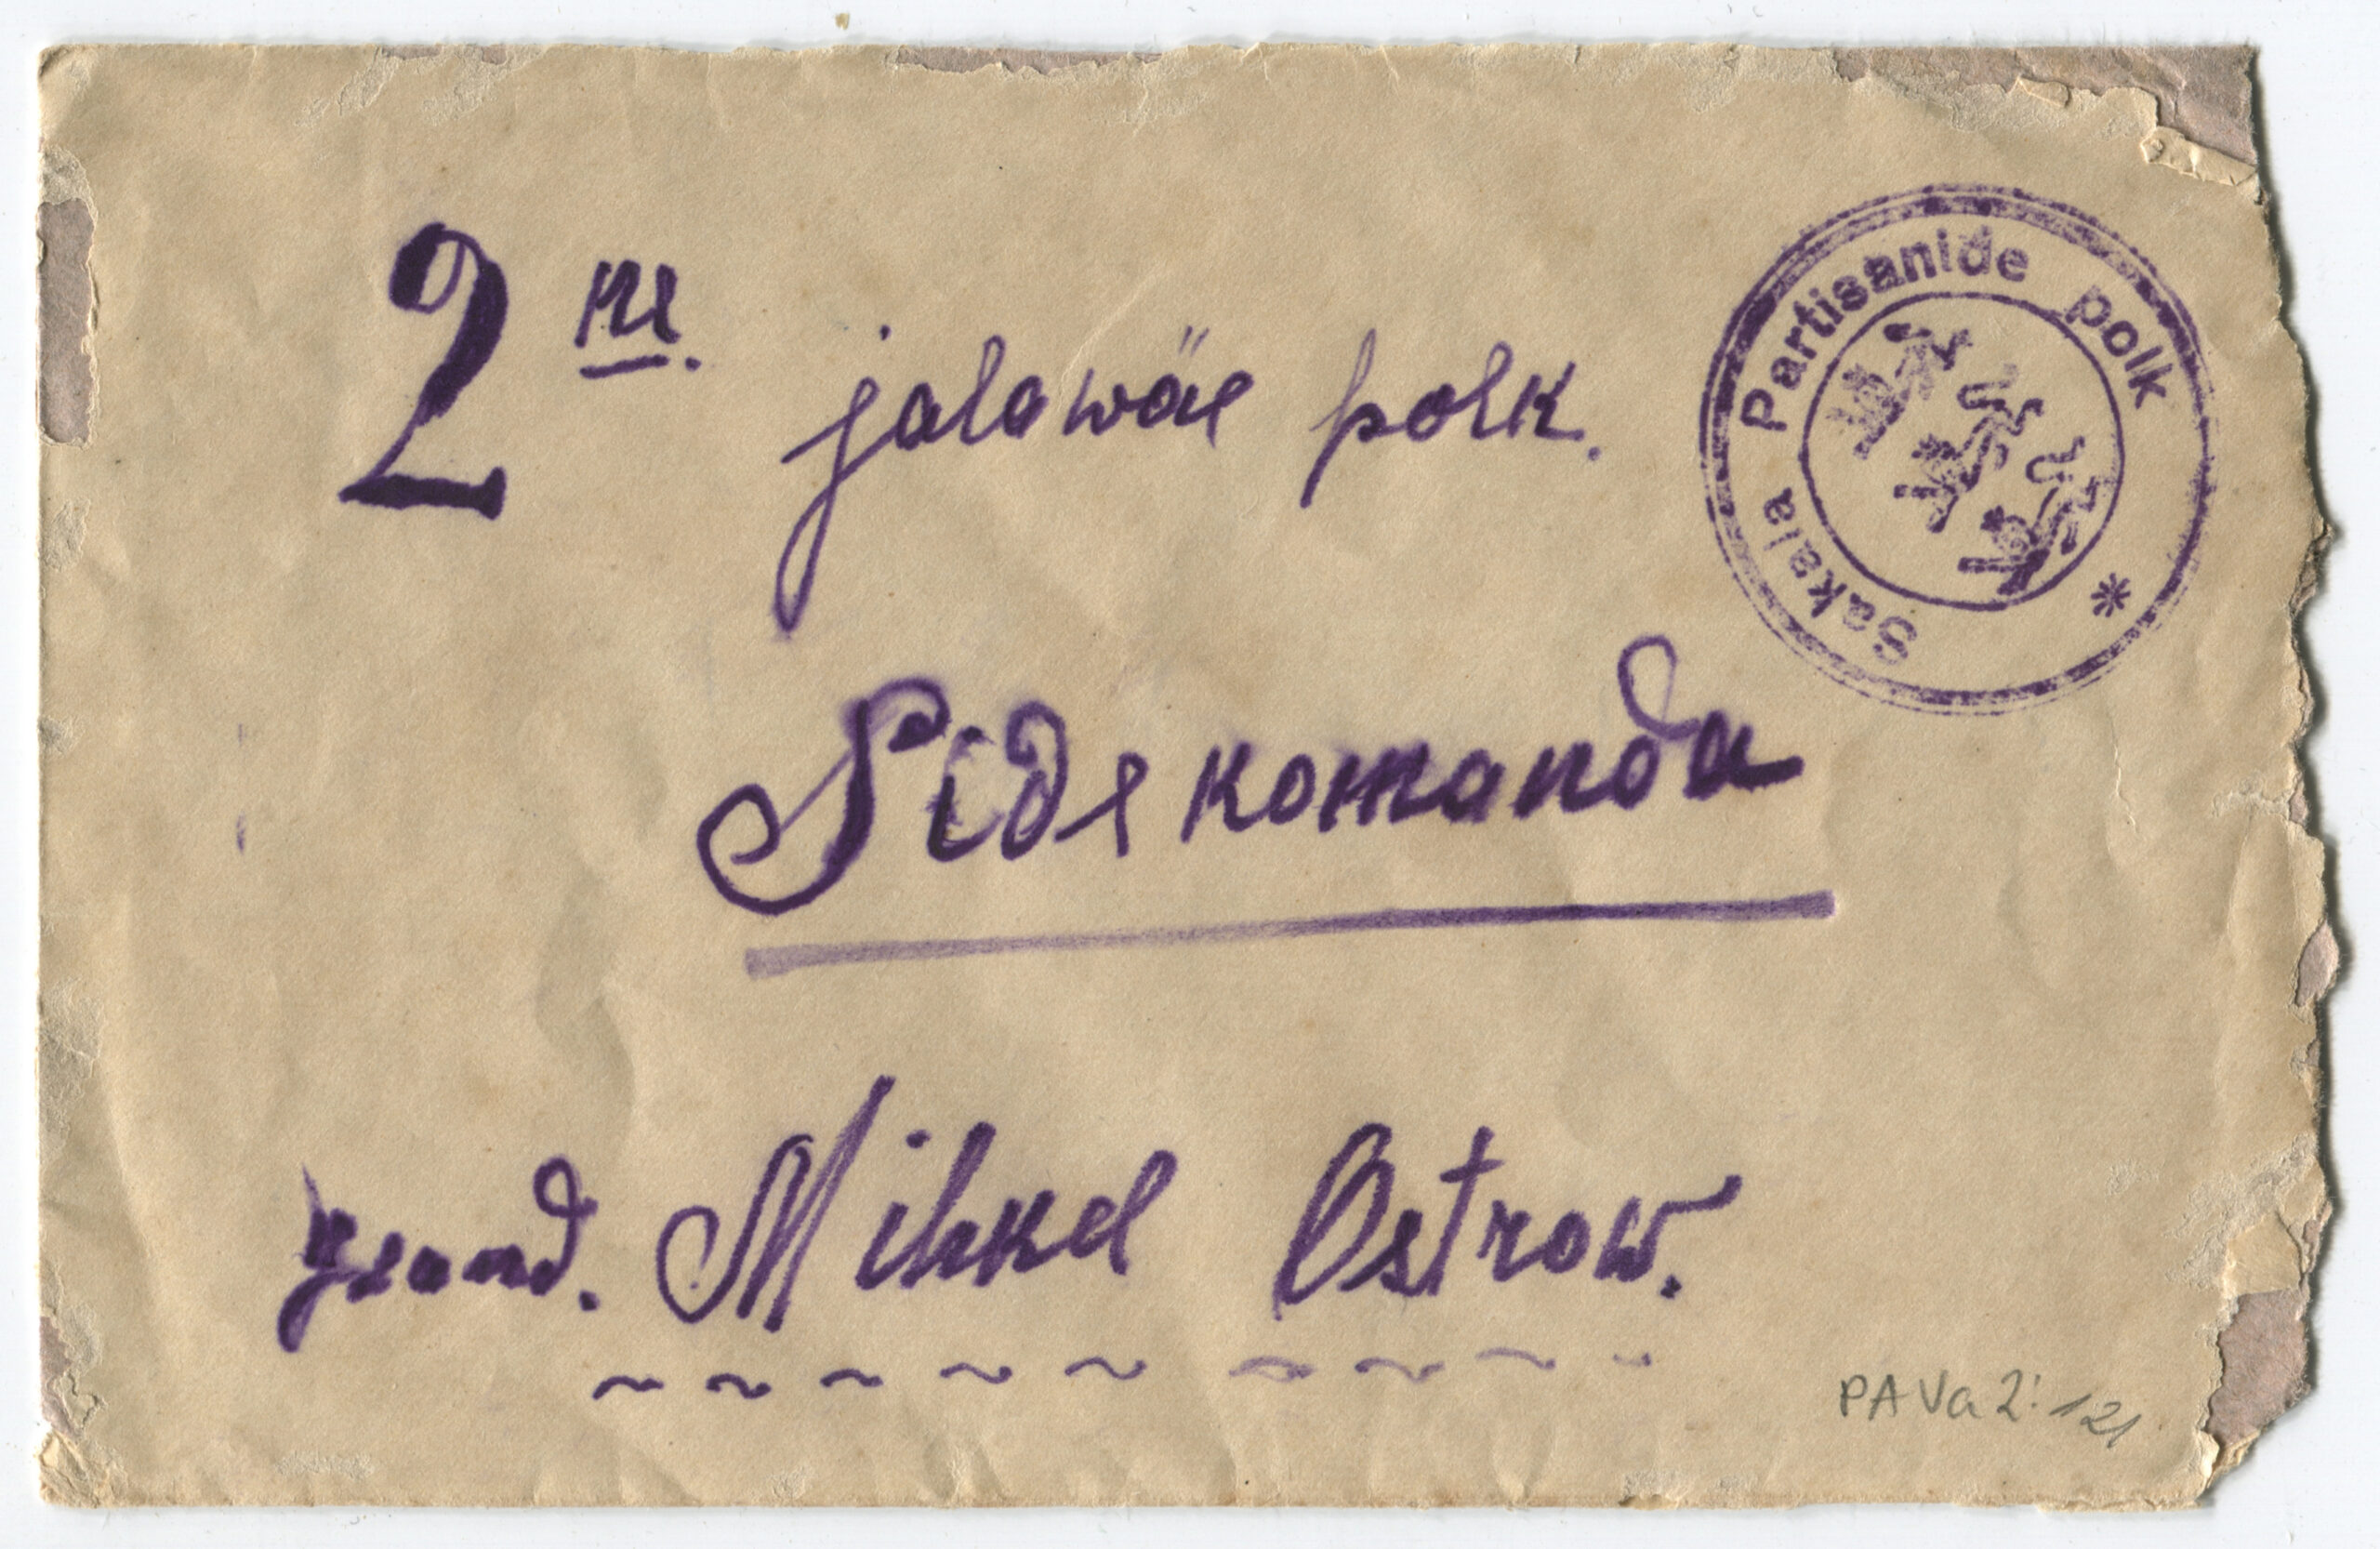 2 ne. jalawäe polk.
Sakala Partisanide polk *
Sidekomanda
Mihkel Ostrow.
PA Va 2: 121